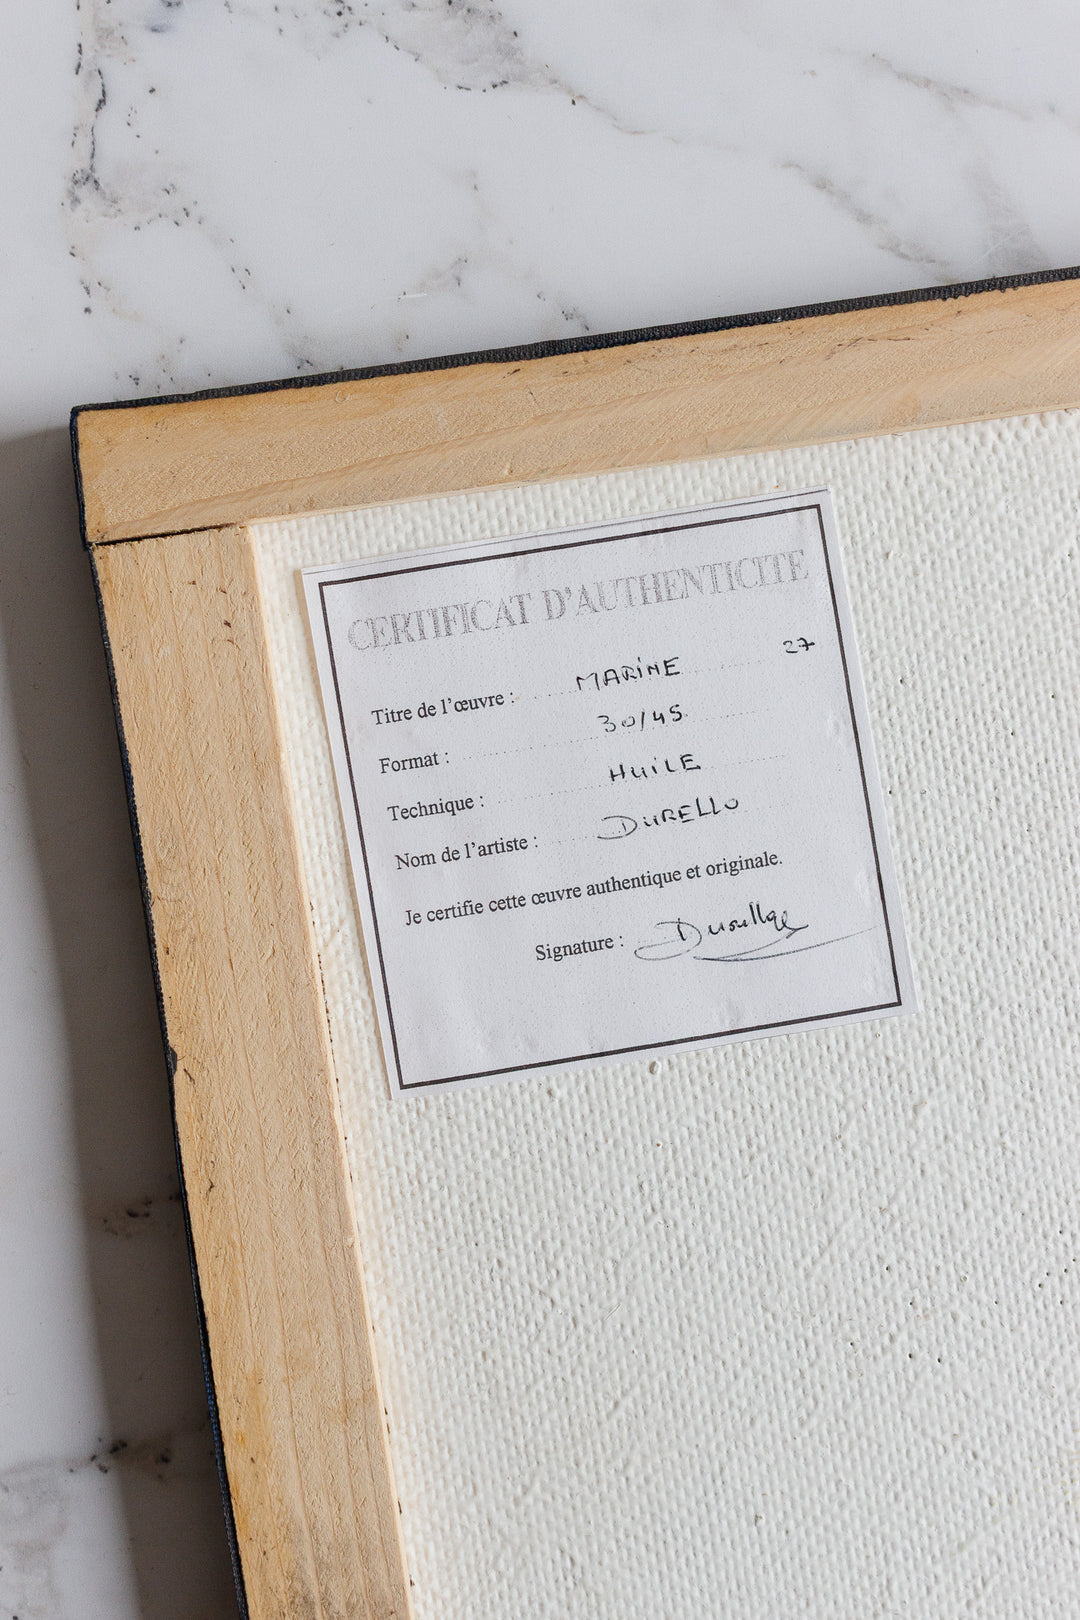 CERTIFICAT D'AUTHENTICITE
Titre de l'œuvre : MARINE 27
Format : 30/45
Technique : HUILE
Nom de l'artiste : DURELLO
Je certifie cette œuvre authentique et originale.
Signature :